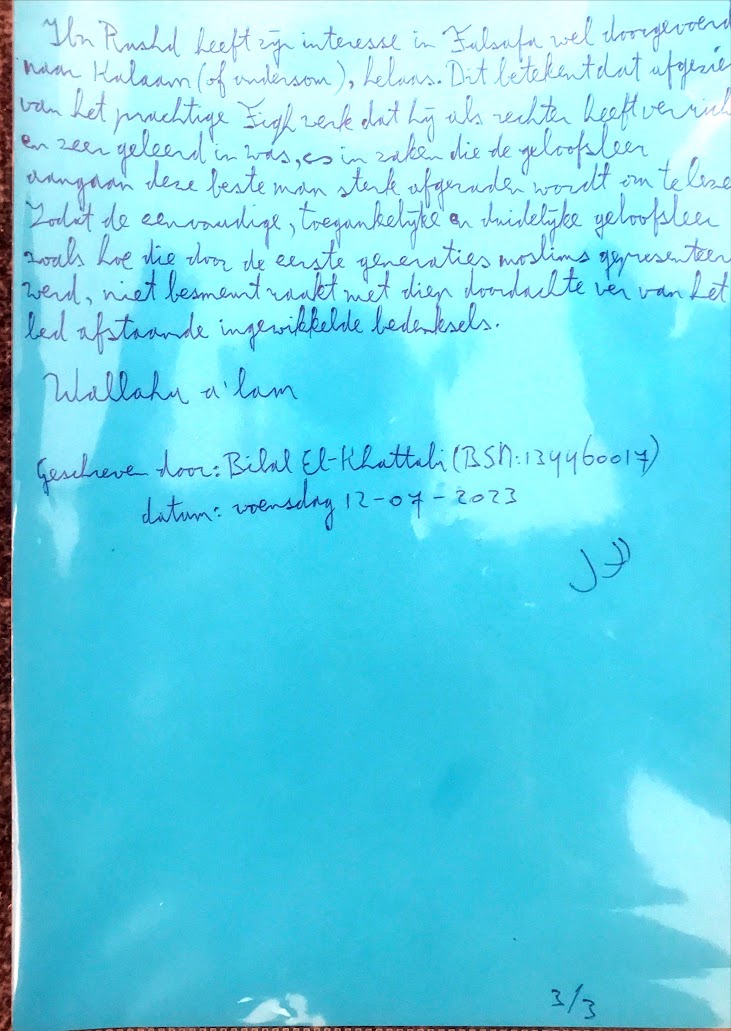 Ibn Rushd heeft zijn interesse in Falsafa wel doorgevoerd
naar Kalaam (of andersom), helaas. Dit betekent dat afgezie
van het prachtige Fiqh werk dat hij als rechter heeft verrich
en zeer geleerd in was, es in zaken die de geloofsleer
aangaan deze beste man sterk afgeraden wordt om te leze
Zodat de eenvoudige, toegankelijke en duidelijke geloofsleer
zoals hoe die door de eerste generaties moslims gepresenteer
werd, niet besmeurt raakt met diep doordachte ver van het
bed afstaande ingewikkelde bedenksels.
Wallahu a'lam
Geschreven door: Bilal El-Khattabi (BSN: 134460017)
datum: woensdag 12-07-2023
3/3